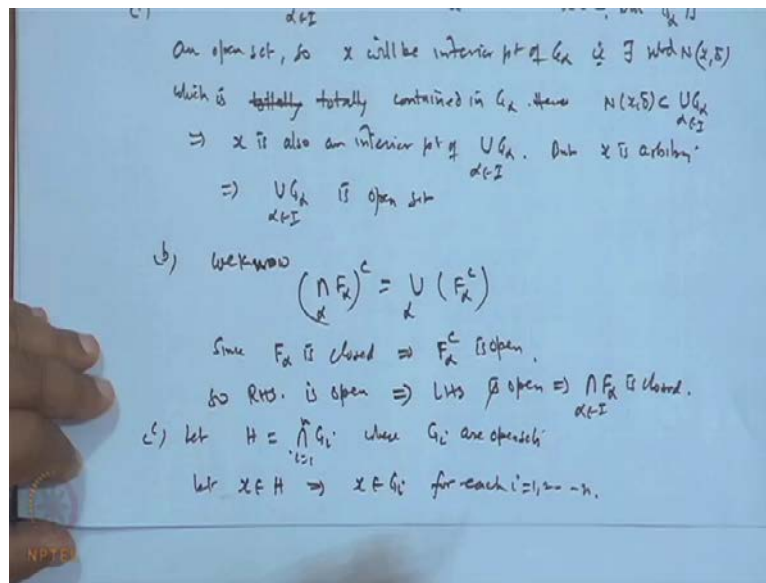 α∈I
an open set, so x will be interior pt of Gα ie ∃ nbd N(x,δ)
which is totally totally contained in Gα. Hence N(x,δ) ⊂ ∪Gα
α∈I
⇒ x is also an interior pt of ∪Gα. But x is arbitrary
α∈I
⇒ ∪Gα is open set
α∈I
b) we know
(∩Fα)^c = ∪(Fα^c)
α α
Since Fα is closed ⇒ Fα^c is open.
So RHS. is open ⇒ LHS is open ⇒ ∩Fα is closed.
α∈I
c) Let H = ∩Gi where Gi are open sets
i=1
let x∈H ⇒ x∈Gi for each i=1,2---n.
NPTEL